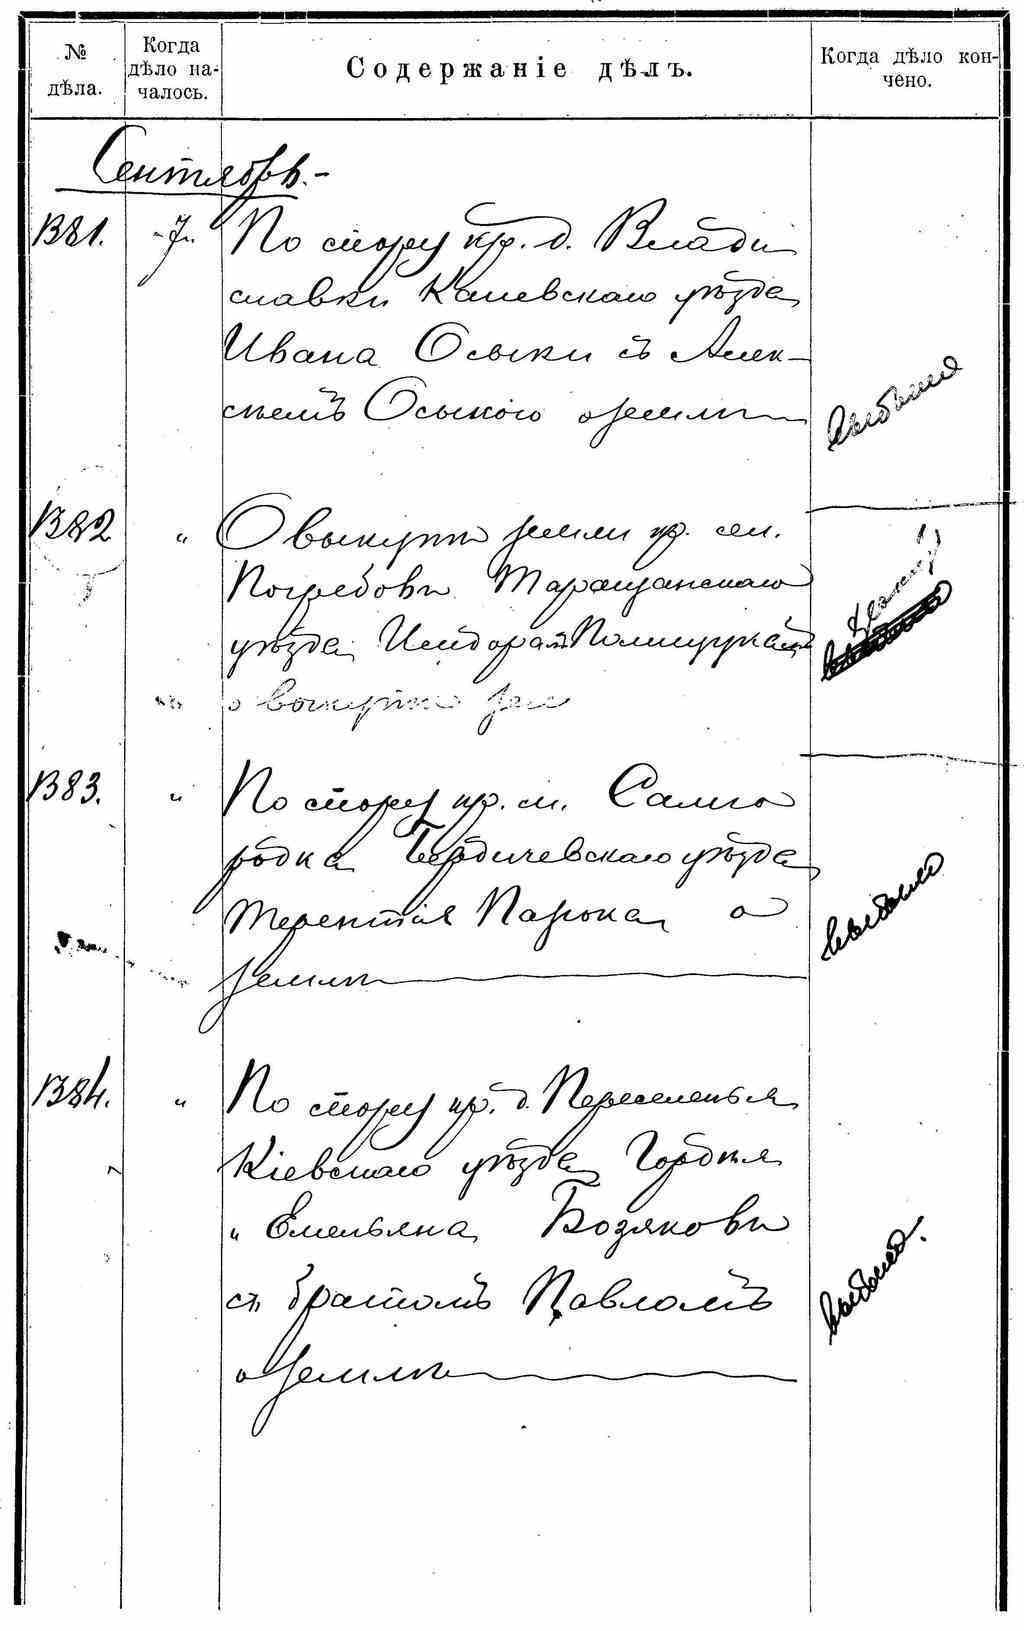 № дѣла.
Когда дѣло на-
чалось.
Содержаніе дѣлъ.
Когда дѣло кон-
чено.
Сентябрь.-
1381. 7. По спору кр. д. Влади
славки Каневскаго уѣзда
Ивана Осыки съ Алек-
сѣемъ Осыкою о землѣ
выбыло
1382 " О выкупѣ земли кр. сел.
Погребовъ Таращанскаго
уѣзда Исидора Полищука
о выкупѣ зем
1383. " По спору кр. м. Самго
родка Бердичевскаго уѣзда
Терентія о
землѣ
выбыло
1384. " По спору кр. д. Переселенья
Кіевскаго уѣзда Гордѣя
и Емельяна Бозяковъ
съ братомъ Павломъ
о землѣ
выбыло.